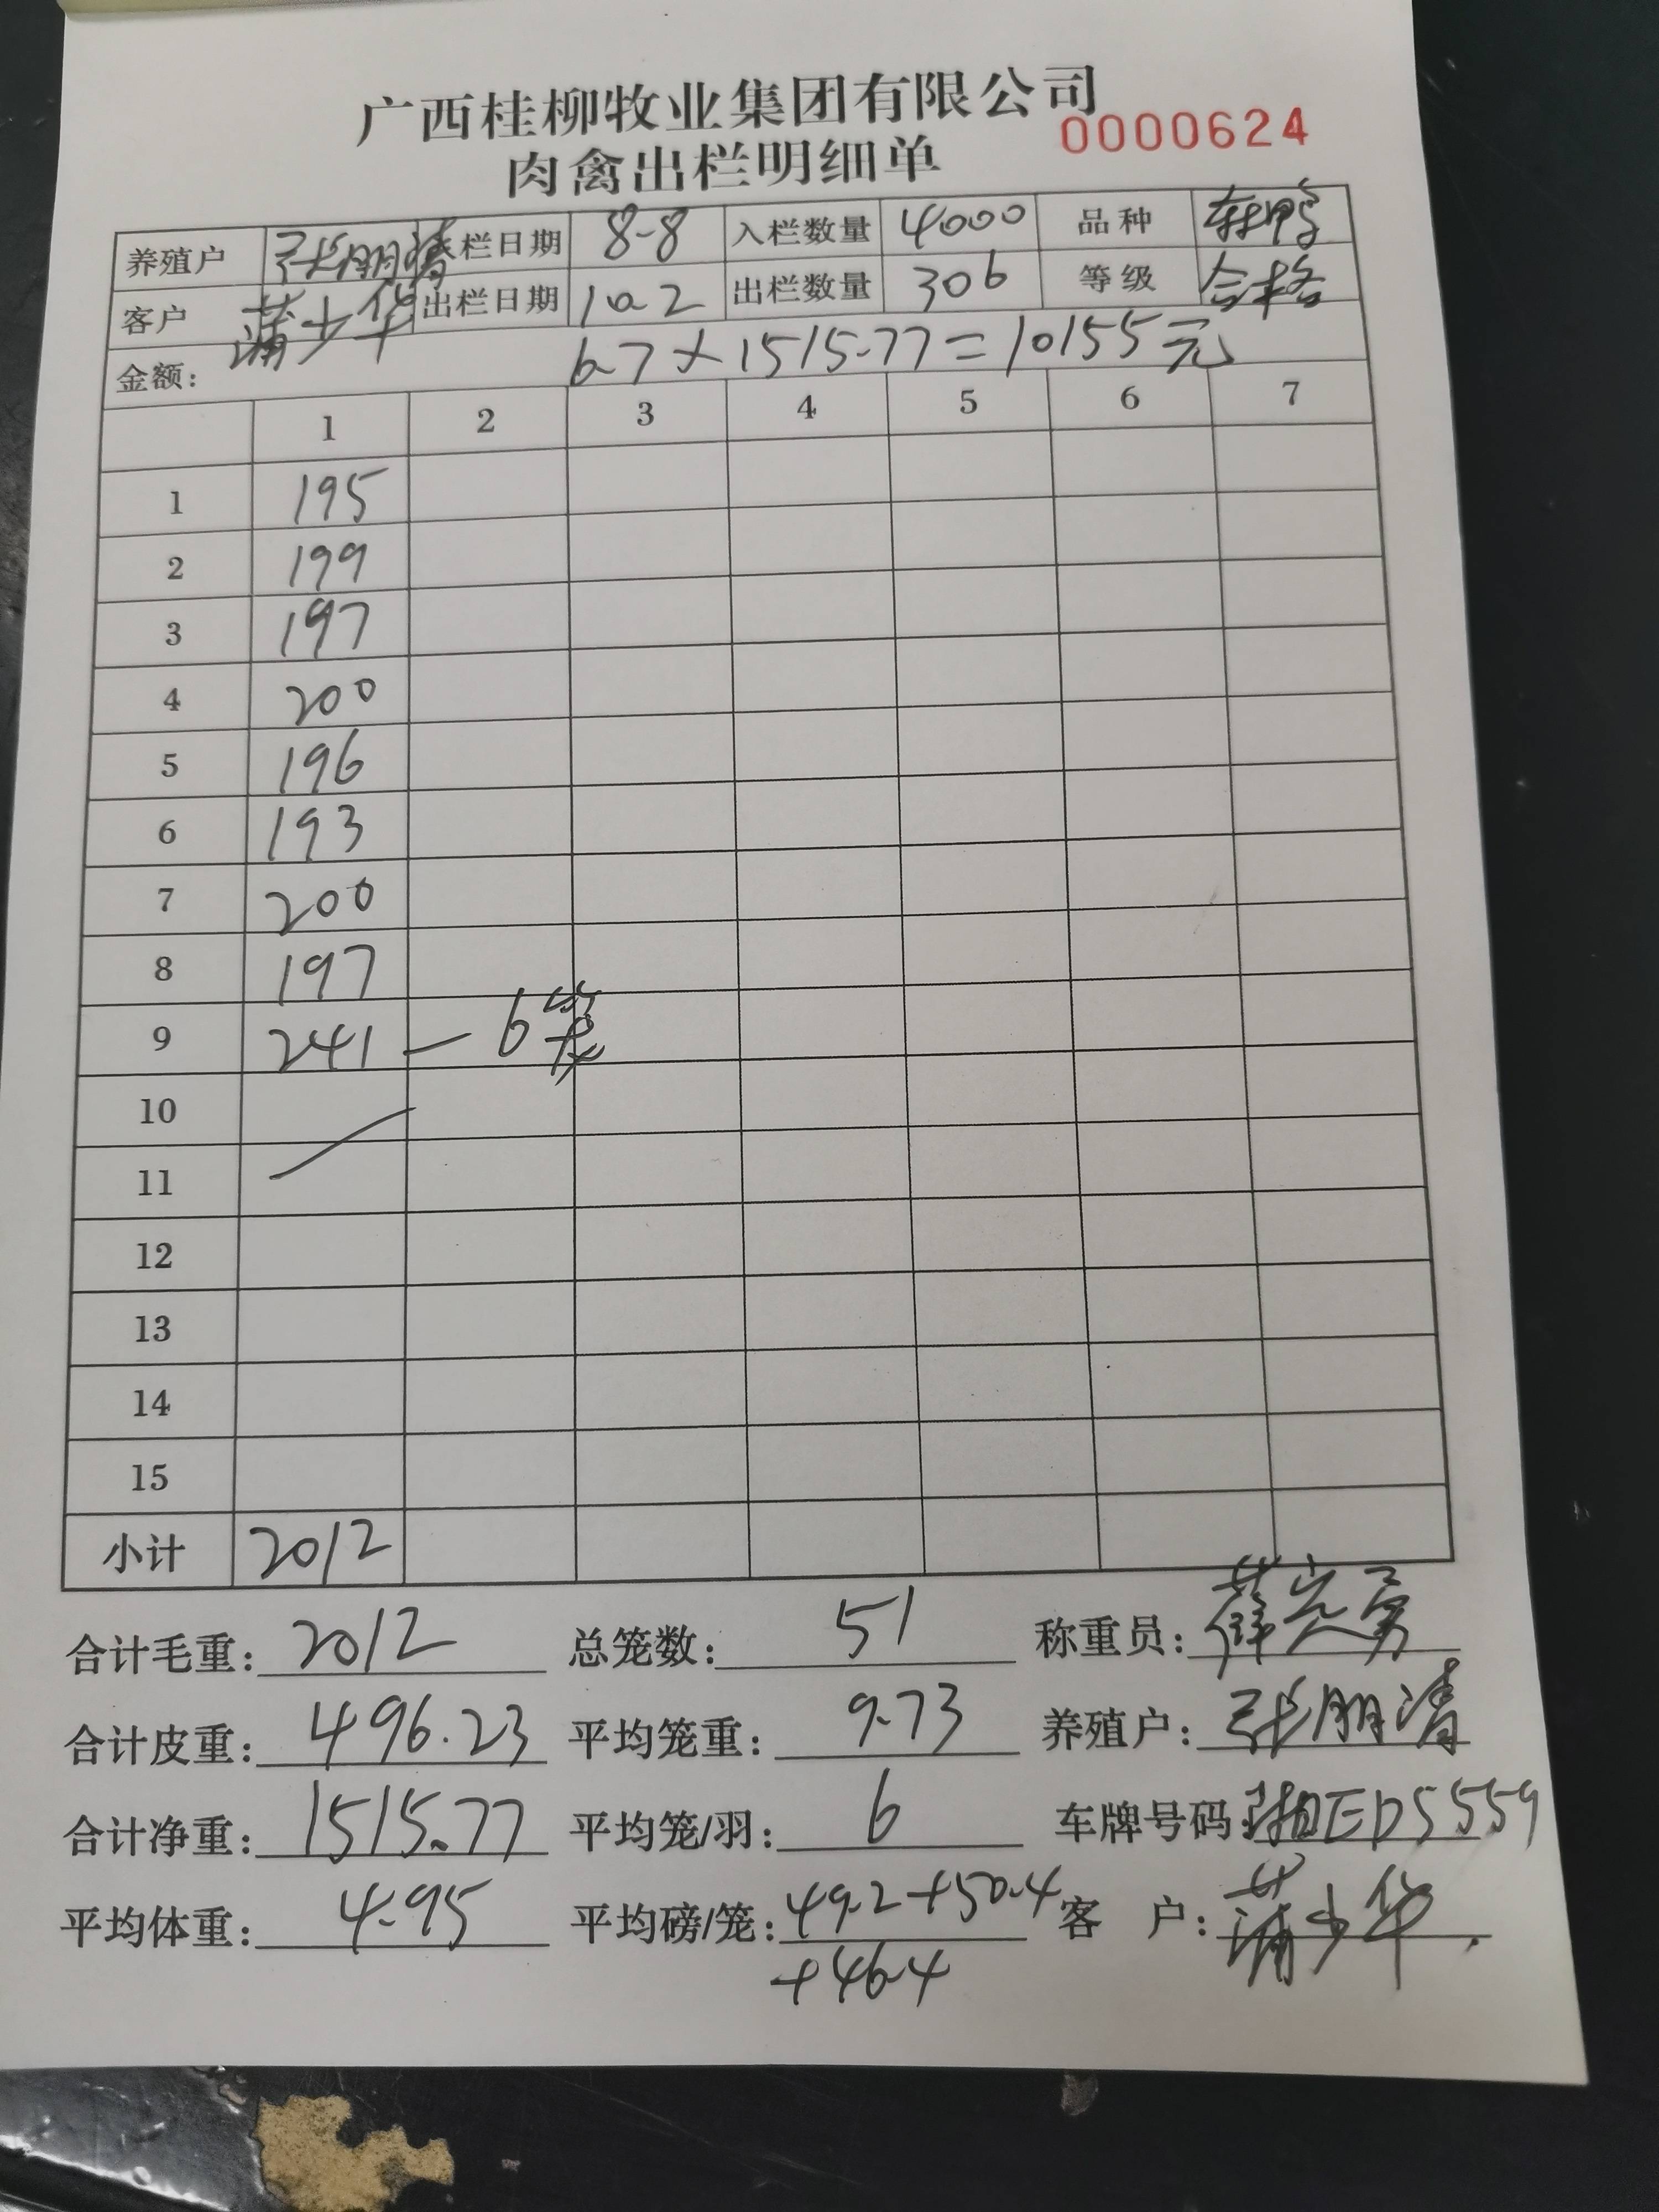 广西桂柳牧业集团有限公司
0000624
肉禽出栏明细单
养殖户 张朋清 入栏日期 8-8 入栏数量 4000 品种 鸭
客户 蒲少华 出栏日期 10.2 出栏数量 306 等级 合格
金额: 6.7×1515.77=10155元
1 2 3 4 5 6 7
1 195
2 199
3 197
4 200
5 196
6 193
7 200
8 197
9 241 — 6笼
10
11
12
13
14
15
小计 2012
合计毛重: 2012 总笼数: 51 称重员: 薛 勇
合计皮重: 496.23 平均笼重: 9.73 养殖户: 张朋清
合计净重: 1515.77 平均笼/羽: 6 车牌号码: 湘ED5559
平均体重: 4.95 平均磅/笼: 49.2+50.4 客 户: 蒲少华
+46.4